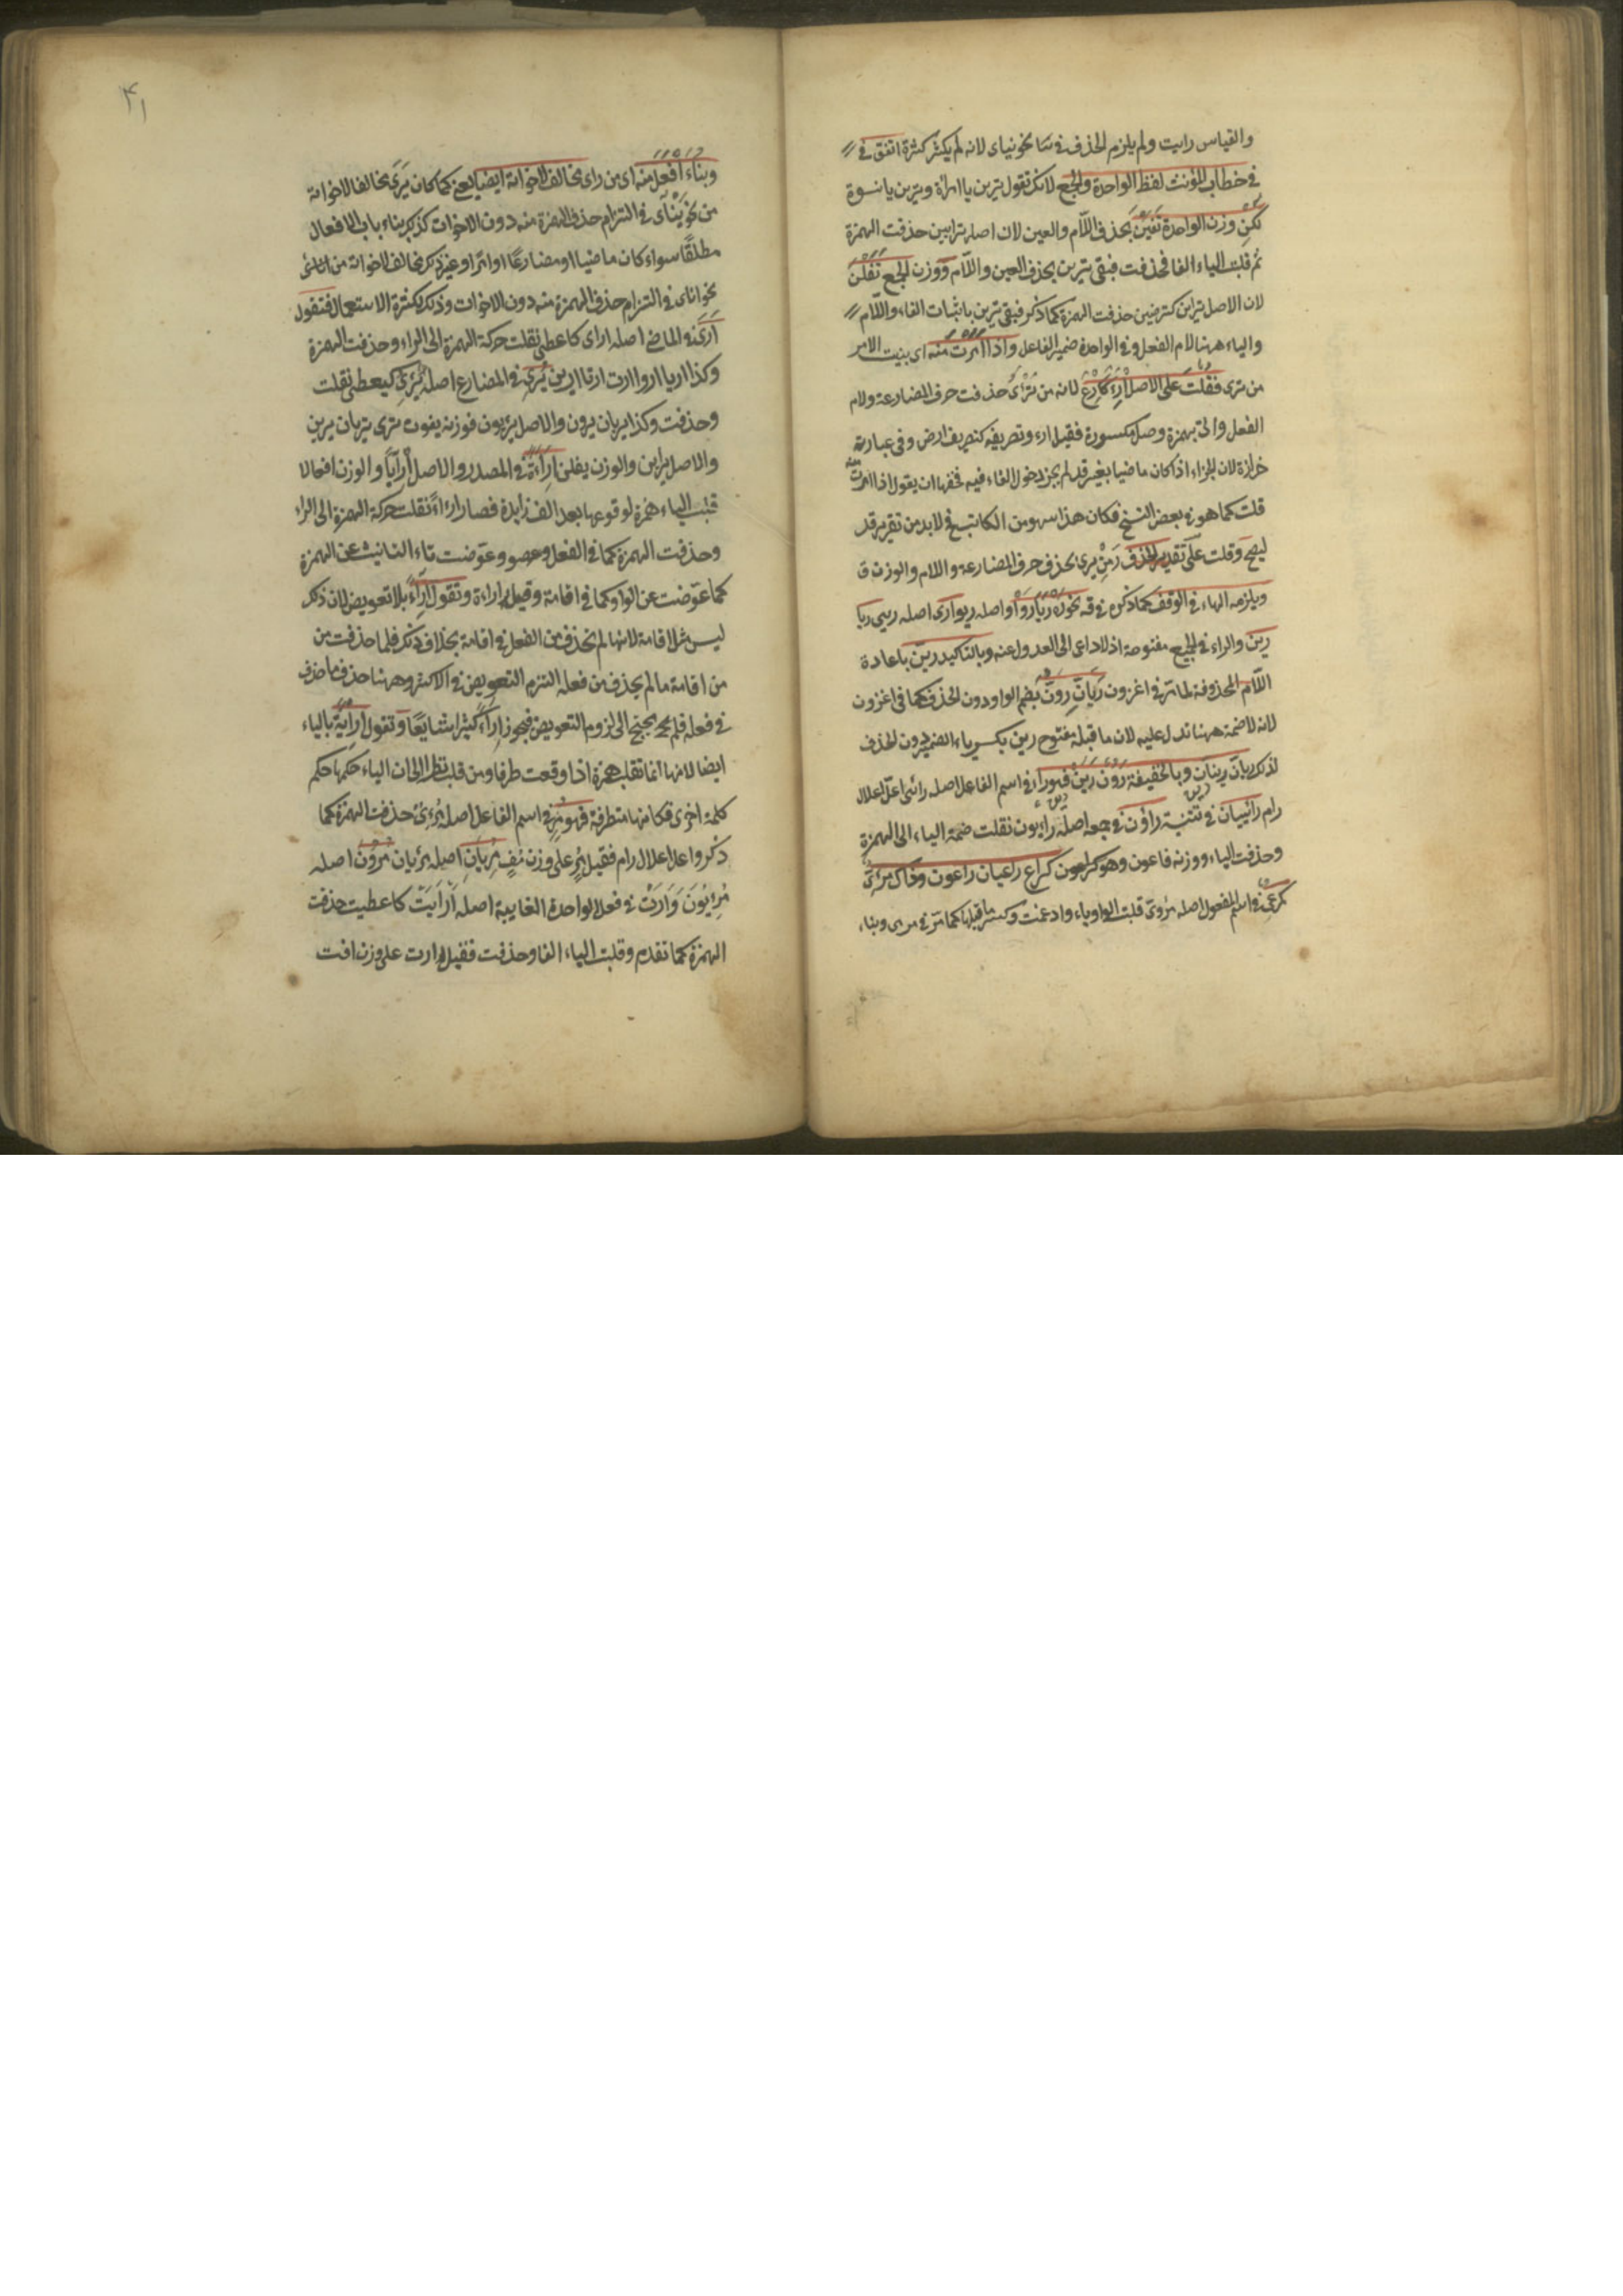 والقياس رايت ولم يلزم الحذف في شا نحو نياى لانه لم يكثر كثرة اتفق في
في خطاب المؤنث لفظ الواحدة والجمع لانك تقول ترين يا امراة وترين يا نسوة
لكن وزن الواحدة تفين بحذف اللام والعين لان اصله ترايين حذفت الهمزة
ثم قلبت الياء الفا فحذفت فبقى ترين بحذف العين واللام ووزن الجمع تفلن
لان الاصل تراين كترضين حذفت الهمزة كما ذكر فبقى ترين باثبات الفاء واللام
والياء ههنا لام الفعل وفي الواحدة ضمير الفاعل واذا امرت منه اى بنيت الامر
من ترى فقلت على الاصل ارء كارع لانه من ترأى حذفت حرف المضارعة ولام
الفعل واتى بهمزة وصل مكسورة فقيل ارء وتصريفه كتصريف ارض وفي عبارته
حزازة لان الجزاء اذا كان ماضيا بغير قد لم يجز دخول الفاء فيه فحقها ان يقول اذا امرت منه
قلت كما هو في بعض النسخ فكان هذا سهو من الكاتب فلا بد من تقرير قد
ليصح وقلت على تقدير الحذف ر من يرى بحذف حرف المضارعة واللام والوزن ف
ويلزمه الهاء في الوقف كما ذكر في قه نحو ره ريا روا واصله ريوا رى اصله ريى ريا
رين والراء في الجميع مفتوحة اذ لا داعى الى العدول عنه وبالتاكيد رين باعادة
اللام المحذوفة لما مر في اغزون ريان رون بضم الواو دون الحذف كما في اغزون
لانه لا ضمة ههنا تدل عليه لان ما قبله مفتوح رين بكسر ياء الضمير دون الحذف
لذلك ريان رينان وبالخفيفة رون رين فهو راء في اسم الفاعل اصله رائى اعل اعلال
رام رائيان في تثنية راؤن في جمعه اصله رايون نقلت ضمة الياء الى الهمزة
وحذفت الياء ووزنه فاعون وهو كراعون كراع راعيان راعون وذاك مرئى
كمرعى في اسم المفعول اصله مروى قلبت الواو ياء وادغمت وكسر ما قبلها كما مر في مرمى وبناء
۴۱
وبناء افعل منه اى من راى مخالف لاخواته ايضا يعنى كما كان يرى مخالفا لاخواته
من نحو ينأى في التزام حذف الهمزة منه دون الاخوات كذلك بناء باب الافعال
مطلقا سواء كان ماضيا او مضارعا او امرا او غير ذلك مخالف لاخواته من
نحو اناى في التزام حذف الهمزة منه دون الاخوات وذلك لكثرة الاستعمال فتقول
ارى في الماضى اصله اراى كاعطى نقلت حركة الهمزة الى الراء وحذفت الهمزة
وكذا اريا اروا ارت ارتا ارين يرى في المضارع اصله يرئى كيعطى نقلت
وحذفت وكذا يريان يرون والاصل يرئيون فوزنه يفون ترى تريان يرين
والاصل يراين والوزن يفلن اراءة في المصدر والاصل ارآيا والوزن افعالا
قلبت الياء همزة لوقوعها بعد الف زايدة فصار اراءا نقلت حركة الهمزة الى الراء
وحذفت الهمزة كما في الفعل وعوضت تاء التانيث عن الهمزة
كما عوضت عن الواو كما في اقامة وقيل اراءة وتقول اراء بلا تعويض لان ذلك
ليس مثل اقامة لانها لم تحذف من الفعل في اقامة بخلاف ذلك فلما حذفت من
من اقامة ما لم يحذف من فعله التزم التعويض في الاكثر وههنا حذف ما حذف
في فعله فلم يحتج الى لزوم التعويض فيجوز اراء كثيرا شايعا وتقول اراية بالياء
ايضا لانها انما تقلب همزة اذا وقعت طرفا ومن قلب نظر الى ان الياء حكمها حكم
كلمة اخرى فكانها متطرفة فهو مر في اسم الفاعل اصله مرئى حذفت الهمزة كما
ذكر واعل اعلال رام فقيل مر على وزن مف مريان اصله مرئيان مرون اصله
مرئيون وارت في فعل الواحدة الغايبة اصله ارأيت كاعطيت حذفت
الهمزة كما تقدم وقلبت الياء الفا وحذفت فقيل ارت على وزن افت